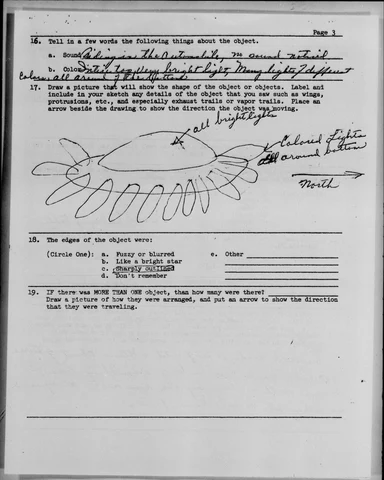 Page 3
16. Tell in a few words the following things about the object.
a. Sound Riding in the Automobile, no sound noticed
b. Color top very bright light, Many lights different
colors all around the bottom
17. Draw a picture that will show the shape of the object or objects. Label and
include in your sketch any details of the object that you saw such as wings,
protrusions, etc., and especially exhaust trails or vapor trails. Place an
arrow beside the drawing to show the direction the object was moving.
all bright lights
Colored Lights
all around bottom
North
18. The edges of the object were:
(Circle One): a. Fuzzy or blurred e. Other
b. Like a bright star
c. Sharply outlined
d. Don't remember
19. IF there was MORE THAN ONE object, than how many were there?
Draw a picture of how they were arranged, and put an arrow to show the direction
that they were traveling.